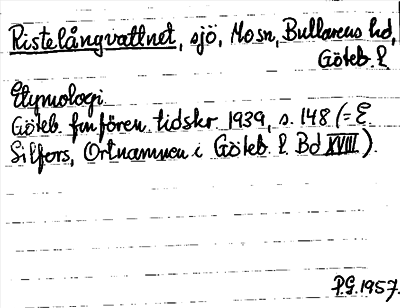 Ristelångvattnet, sjö, Mosn, Bullarens hd,
Göteb. l.
Etymologi
Göteb. fmfören. tidskr 1939, s. 148 (= E
Silfors, Ortnamnen i Göteb. l. Bd XVIII).
P.G. 1957.